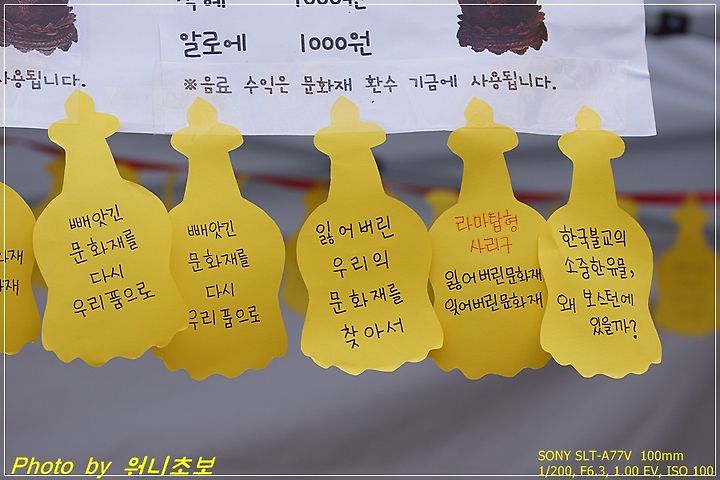 1000원
알로에 1000원
사용됩니다.
※음료 수익은 문화재 환수 기금에 사용됩니다.
빼앗긴
문화재를
다시
우리품으로
빼앗긴
문화재를
다시
우리품으로
잃어버린
우리의
문화재를
찾아서
라마탑형
사리구
잃어버린문화재
잊어버린문화재
한국불교의
소중한유물,
왜 보스턴에
있을까?
Photo by 워니초보
SONY SLT-A77V 100mm
1/200, F6.3, 1.00 EV, ISO 100